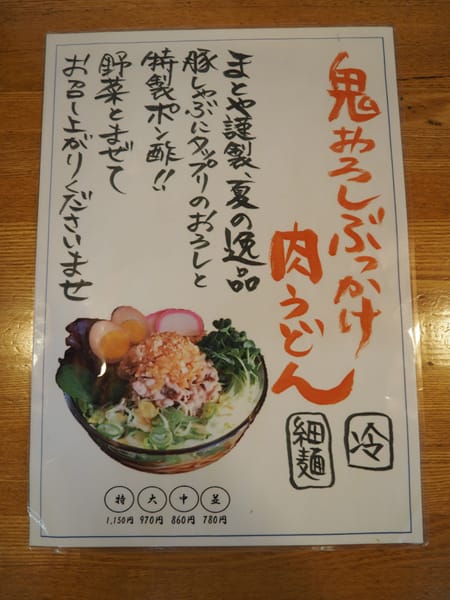 鬼おろしぶっかけ
肉うどん
冷
細麺
まとや謹製、夏の逸品
豚しゃぶにタップリのおろしと
特製ポン酢!!
野菜とまぜて
お召し上がりくださいませ
特 大 中 並
1,150円 970円 860円 780円